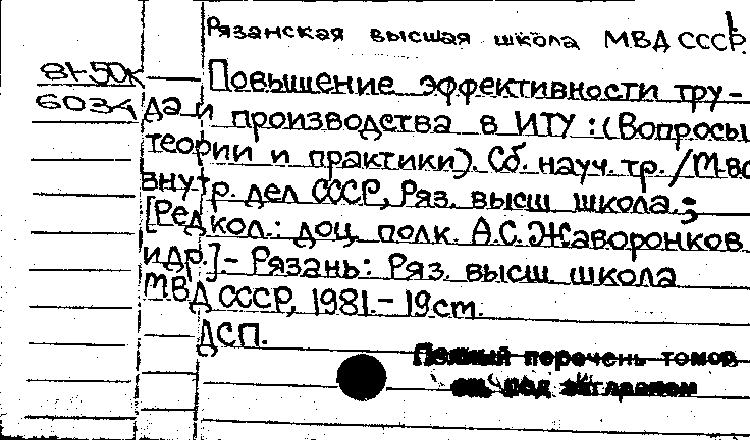 Рязанская высшая школа МВД СССР.
81-50к
6034
Повышение эффективности тру-
да и производства в ИТУ : (Вопросы
теории и практики). Сб. науч. тр. / М-во
внутр. дел СССР, Ряз. высш школа.;
[Редкол.: доц. полк. А.С. Жаворонков
и др.].- Рязань: Ряз. высш школа
МВД СССР, 1981.- 19см.
ДСП.
Полный перечень томов
см. под заглавием